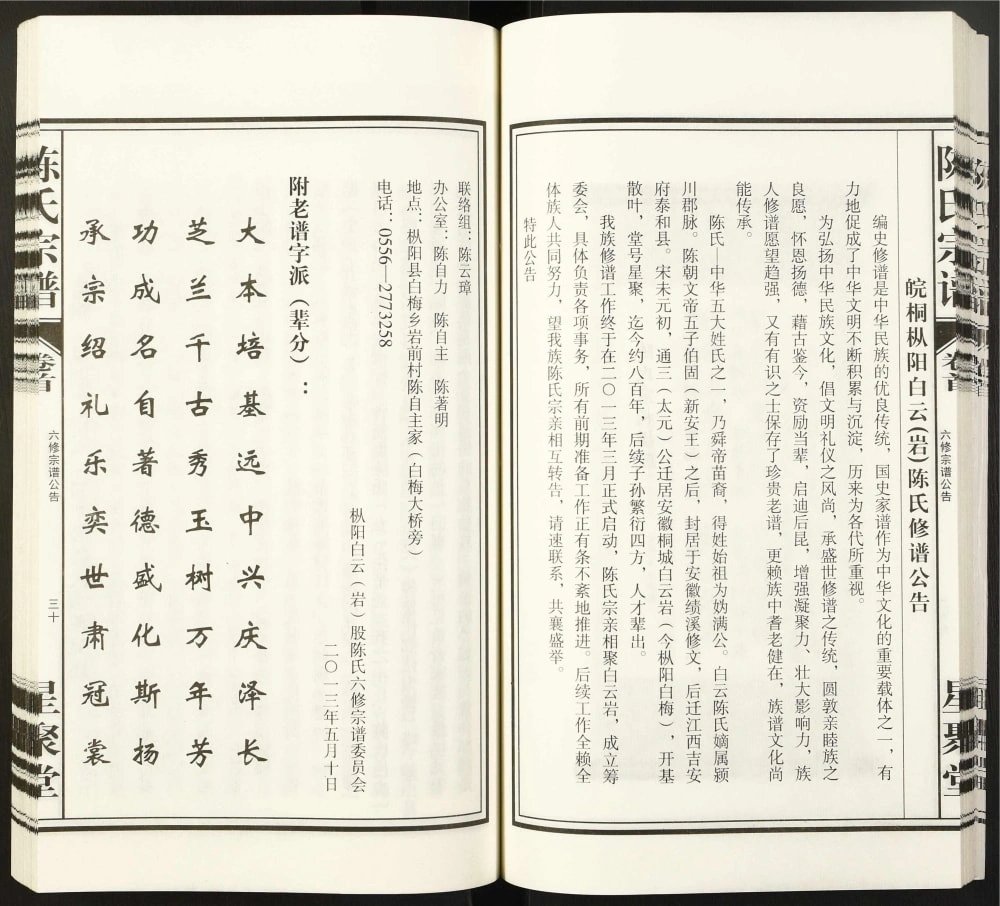 皖桐枞阳白云(岩)陈氏修谱公告
编史修谱是中华民族的优良传统，国史家谱作为中华文化的重要载体之一，有
力地促成了中华文明不断积累与沉淀，历来为各代所重视。
为弘扬中华民族文化，倡文明礼仪之风尚，承盛世修谱之传统，圆敦亲睦族之
良愿，怀恩扬德，藉古鉴今，资励当辈，启迪后昆，增强凝聚力、壮大影响力，族
人修谱愿望趋强，又有有识之士保存了珍贵老谱，更赖族中耆老健在，族谱文化尚
能传承。
陈氏—中华五大姓氏之一，乃舜帝苗裔，得姓始祖为妫满公。白云陈氏嫡属颍
川郡脉。陈朝文帝五子伯固（新安王）之后，封居于安徽绩溪修文，后迁江西吉安
府泰和县。宋末元初，通三（太元）公迁居安徽桐城白云岩（今枞阳白梅），开基
散叶，堂号星聚，迄今约八百年，后续子孙繁衍四方，人才辈出。
我族修谱工作终于在二〇一三年三月正式启动，陈氏宗亲相聚白云岩，成立筹
委会，具体负责各项事务，所有前期准备工作正有条不紊地推进。后续工作全赖全
体族人共同努力，望我族陈氏宗亲相互转告，请速联系，共襄盛举。
特此公告
陈氏宗谱
卷首
六修宗谱公告
星聚堂
联络组：陈云璋
办公室：陈自力 陈自主 陈著明
地点：枞阳县白梅乡岩前村陈自主家（白梅大桥旁）
电话：0556—2773258
枞阳白云（岩）股陈氏六修宗谱委员会
二〇一三年五月十日
附老谱字派（辈分）：
大本培基远中兴庆泽长
芝兰千古秀玉树万年芳
功成名自著德盛化斯扬
承宗绍礼乐奕世肃冠裳
陈氏宗谱
卷首
六修宗谱公告
三十
星聚堂